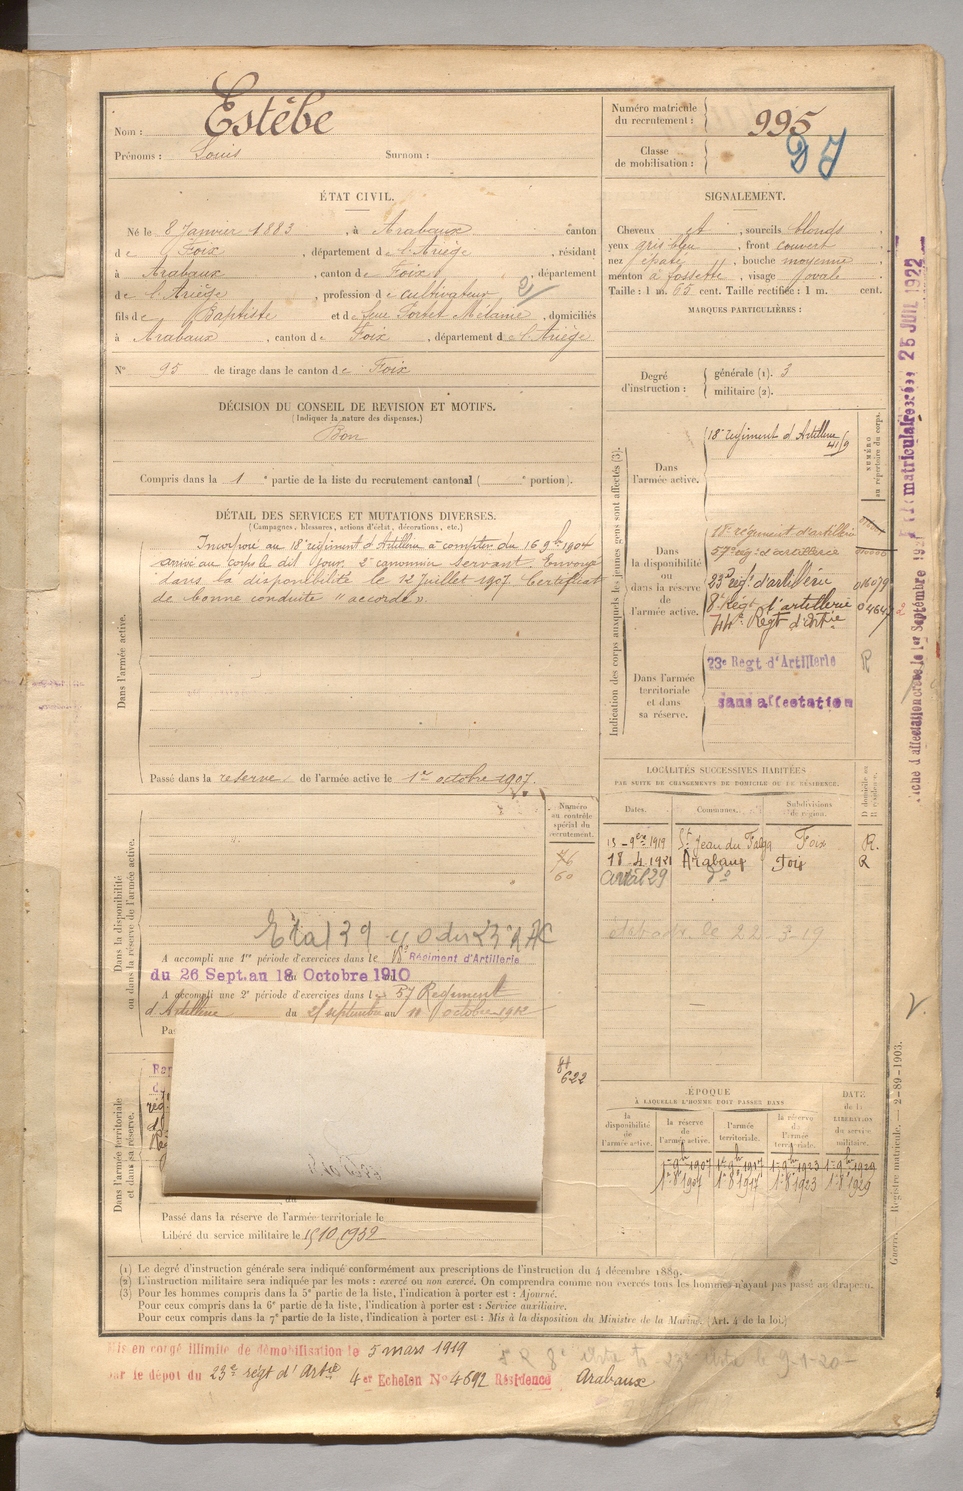 Nom : Estèbe
Prénoms : Louis Surnom :
Numéro matricule du recrutement : 995
Classe de mobilisation :
ÉTAT CIVIL.
Né le 8 Janvier 1883, à Arabaux canton
de Foix, département de l'Ariège, résidant
à Arabaux, canton de Foix, département
de l'Ariège, profession de cultivateur
fils de Baptiste et de feue Sortet Mélanie, domiciliés
à Arabaux, canton de Foix, département de l'Ariège
N° 95 de tirage dans le canton de Foix
SIGNALEMENT.
Cheveux et, sourcils blonds,
yeux gris bleu, front couvert,
nez épaté, bouche moyenne,
menton à fossette, visage ovale.
Taille : 1 m. 65 cent. Taille rectifiée : 1 m. cent.
MARQUES PARTICULIÈRES :
Degré d'instruction : générale (1). 3
militaire (2).
DÉCISION DU CONSEIL DE REVISION ET MOTIFS.
(Indiquer la nature des dispenses.)
Bon
Compris dans la 1e partie de la liste du recrutement cantonal ( e portion).
DÉTAIL DES SERVICES ET MUTATIONS DIVERSES.
(Campagnes, blessures, actions d'éclat, décorations, etc.)
Dans l'armée active.
Incorporé au 18e régiment d'Artillerie à compter du 16 9bre 1904
arrivé au corps le dit jour. 2e canonnier servant. Envoyé
dans la disponibilité le 12 Juillet 1907. Certificat
de bonne conduite "accordé".
Passé dans la réserve de l'armée active le 1er octobre 1907.
Indication des corps auxquels les jeunes gens sont affectés (3).
NUMÉRO au répertoire du corps.
Dans l'armée active.
18e régiment d'Artillerie
Dans la disponibilité ou dans la réserve de l'armée active.
18e régiment d'artillerie
57e rég. d'artillerie
23e rég. d'artillerie
8e Régt d'artillerie
Dans l'armée territoriale et dans sa réserve.
23e Régt d'Artillerie
R
sans affectation
LOCALITÉS SUCCESSIVES HABITÉES
PAR SUITE DE CHANGEMENTS DE DOMICILE OU DE RÉSIDENCE.
Dates. Communes. Subdivisions de région. D domicile ou R résidence.
15-9bre 1919 St Jean du Falga Foix R.
18-4-1921 Arabaux Foix R
avril 29 do
Dans la disponibilité ou dans la réserve de l'armée active.
Numéro au contrôle spécial du recrutement.
76
60
A accompli une 1re période d'exercices dans le 18e Régiment d'Artillerie
du 26 Sept. au 18 Octobre 1910
A accompli une 2e période d'exercices dans le 57 Régiment
d'Artillerie du 25 septembre au 11 octobre 1912
Pas
622
Dans l'armée territoriale et dans sa réserve.
Passé dans la réserve de l'armée territoriale le
Libéré du service militaire le 15/10/1932
ÉPOQUE
À LAQUELLE L'HOMME DOIT PASSER DANS
la disponibilité de l'armée active. la réserve de l'armée active. l'armée territoriale. la réserve de l'armée territoriale. DATE de la LIBÉRATION du service militaire.
1er 9bre 1907 1er 9bre 1917 1er 9bre 1923 1er 9bre 1929
1er 8bre 1907 1er 8bre 1917 1er 8bre 1923 1er 8bre 1929
(1) Le degré d'instruction générale sera indiqué conformément aux prescriptions de l'instruction du 4 décembre 1889.
(2) L'instruction militaire sera indiquée par les mots : exercé ou non exercé. On comprendra comme non exercés tous les hommes n'ayant pas passé au drapeau.
(3) Pour les hommes compris dans la 5e partie de la liste, l'indication à porter est : Ajourné.
Pour ceux compris dans la 6e partie de la liste, l'indication à porter est : Service auxiliaire.
Pour ceux compris dans la 7e partie de la liste, l'indication à porter est : Mis à la disposition du Ministre de la Marine. (Art. 4 de la loi.)
Mis en congé illimité de démobilisation le 5 mars 1919
par le dépôt du 23e régt d'Artie 4er Echelon N° 4692 Résidence Arabaux
Registre matricule. — 2-89-1903.
25 JUIL 1922